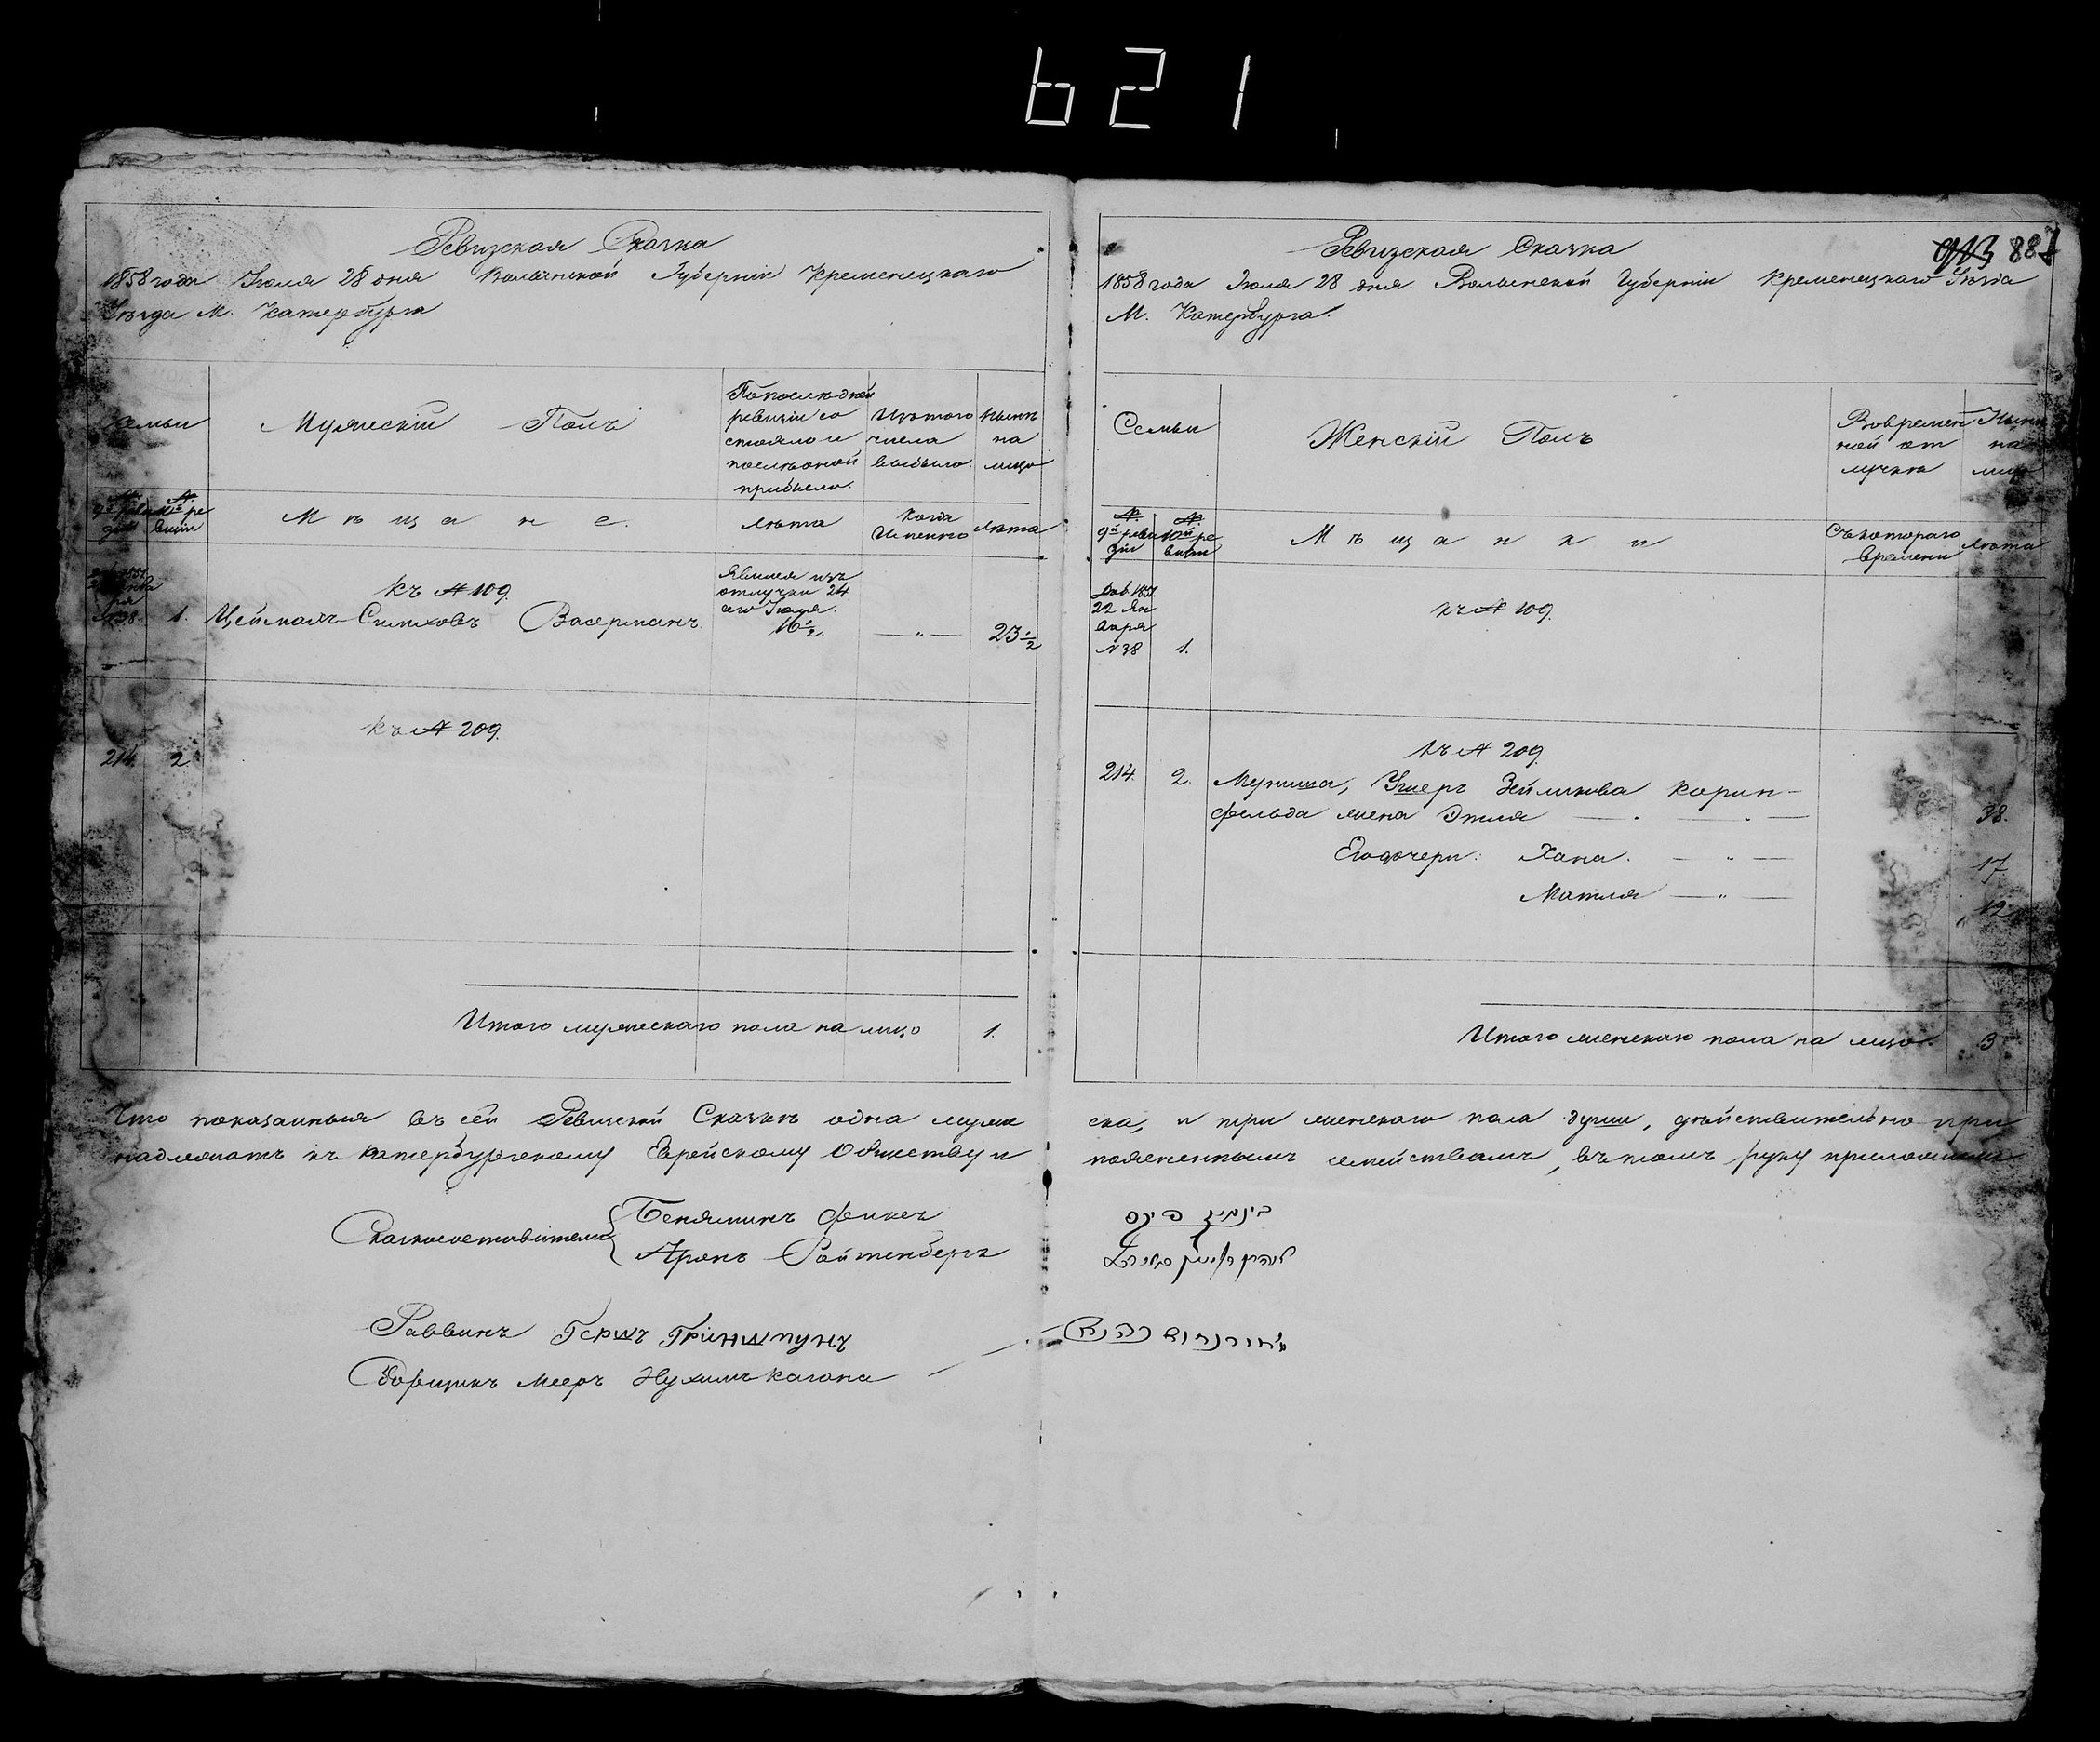 621
Ревизская Сказка
1858 года Июля 28 дня Волынской Губернiи Кременецкаго
Уѣзда М. Катербурга
Семьи
Мужескiй Полъ
По послѣдней
ревизiи со
стояло и
после оной
прибыло.
Изъ того
числа
выбыло.
Нынѣ
на
лицо
№ 9й ревизiи
№ 10й ревизiи
Мѣщане.
Лѣта
Когда
Именно
Лѣта
къ № 109.
Явился изъ
отлучки 24
аго Iюля.
№ 38.
1. Цеймахъ Симховъ Васерманъ. 16½. — „ — 23½
къ № 209.
214. 2.
Итого мужескаго пола на лицо 1.
913 881
Ревизская Сказка
1858 года Июля 28 дня. Волынской Губернiи Кременецкаго Уѣзда
М. Катербурга.
Семьи
Женскiй Полъ
Во времен
ной от
лучке
Нынѣ
на
лицо
№ 9й реви
зiи
№ 10й ре
визiи
Мѣщанки
Съ котораго
времени
Лѣта
Доб. 1851.
22 Ян
варя
№ 38 1.
къ № 109.
къ № 209.
214. 2. Муниша, Ушеръ Зейликова Корин-
фельда жена Этля 38.
Его дочери: Хана. — „ — 17
Матля — „ — 12
Итого женскаго пола на лицо. 3
Что показанныя въ сей Ревизской Сказкѣ одна муже
ска, и три женскаго пола души, действительно при
надлежатъ къ Катербургскому Еврейскому Обществу и
поясненнымъ семействамъ, въ томъ руку приложили
Сказкосоставители
Беняминъ Фиксъ
Аронъ Ройтенбергъ
בינמין פיקס
Раввинъ Гершъ Гриншпунъ
Сборщикъ Мееръ Нухимъ Кагана